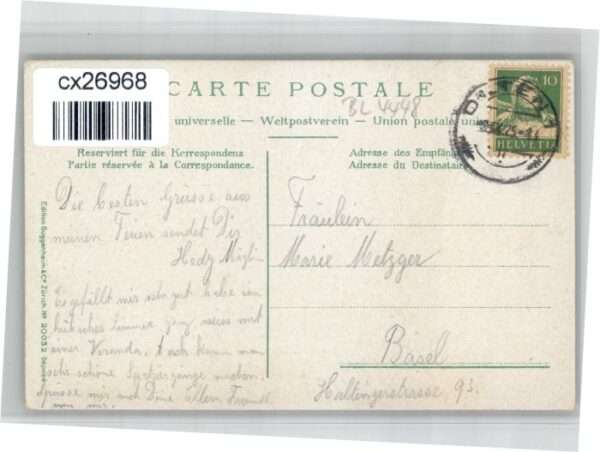 cx26968
CARTE POSTALE
BL 4448
universelle — Weltpostverein — Union postale un
Reserviert für die Korrespondenz
Partie réservée à la Correspondance.
Adresse des Empfäng
Adresse du Destinatair
10
HELVETIA
Die besten Grüsse aus
meinen Ferien sendet Dir
Hedy
Es gefällt mir sehr gut habe ein
hübsches Zimmer ganz neues mit
einer Veranda. Auch kann man
sehr schöne Spaziergänge machen.
Grüsse mir auch Deine Eltern
von mir.
Fräulein
Marie Metzger
Basel
Haltingerstrasse 93.
Edition Guggenheim & Co Zürich No 20032